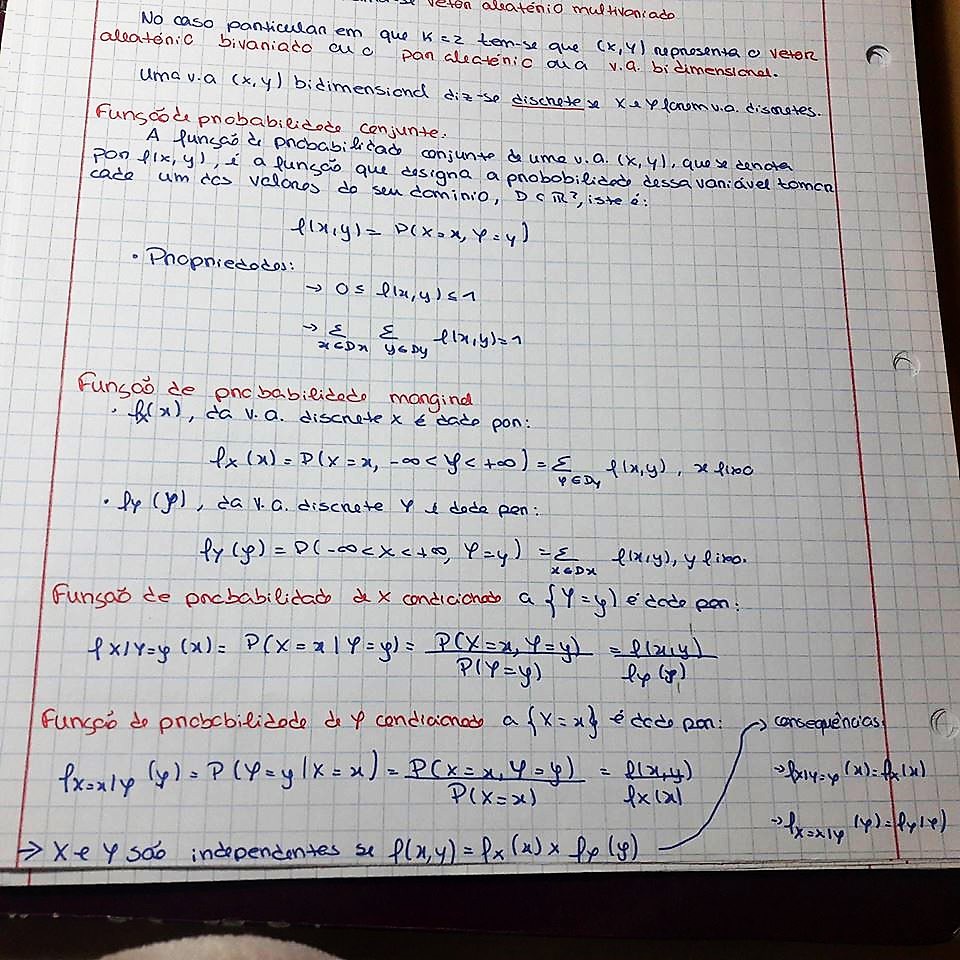 vetor aleatório multivariado
No caso particular em que K=2 tem-se que (X,Y) representa o vetor
aleatório bivariado ou o par aleatório ou a v.a. bidimensional.
Uma v.a (X,Y) bidimensional diz-se discreta se X e Y forem v.a. discretas.
Função de probabilidade conjunta.
A função de probabilidade conjunta de uma v.a. (X,Y), que se denota
por f(x,y), é a função que designa a probabilidade dessa variável tomar
cada um dos valores do seu domínio, D⊂ℝ², isto é:
f(x,y) = P(X=x, Y=y)
• Propriedades:
→ 0 ≤ f(x,y) ≤ 1
→ Σ_{x∈Dx} Σ_{y∈Dy} f(x,y)=1
Função de probabilidade marginal
• fx(x), da v.a. discreta X é dado por:
fx(x) = P(X=x, -∞<Y<+∞) = Σ_{y∈Dy} f(x,y), x fixo
• fy(y), da v.a. discreta Y é dada por:
fy(y) = P(-∞<X<+∞, Y=y) = Σ_{x∈Dx} f(x,y), y fixo.
Função de probabilidade de X condicionado a {Y=y} é dado por:
f X|Y=y (x) = P(X=x | Y=y) = P(X=x, Y=y) / P(Y=y) = f(x,y) / fy(y)
Função de probabilidade de Y condicionado a {X=x} é dado por:
f X=x|Y (y) = P(Y=y | X=x) = P(X=x, Y=y) / P(X=x) = f(x,y) / fx(x)
→ X e Y são independentes se f(x,y) = fx(x) × fy(y)
→ consequências
→ f X|Y=y (x) = fx(x)
→ f X=x|Y (y) = fy(y)